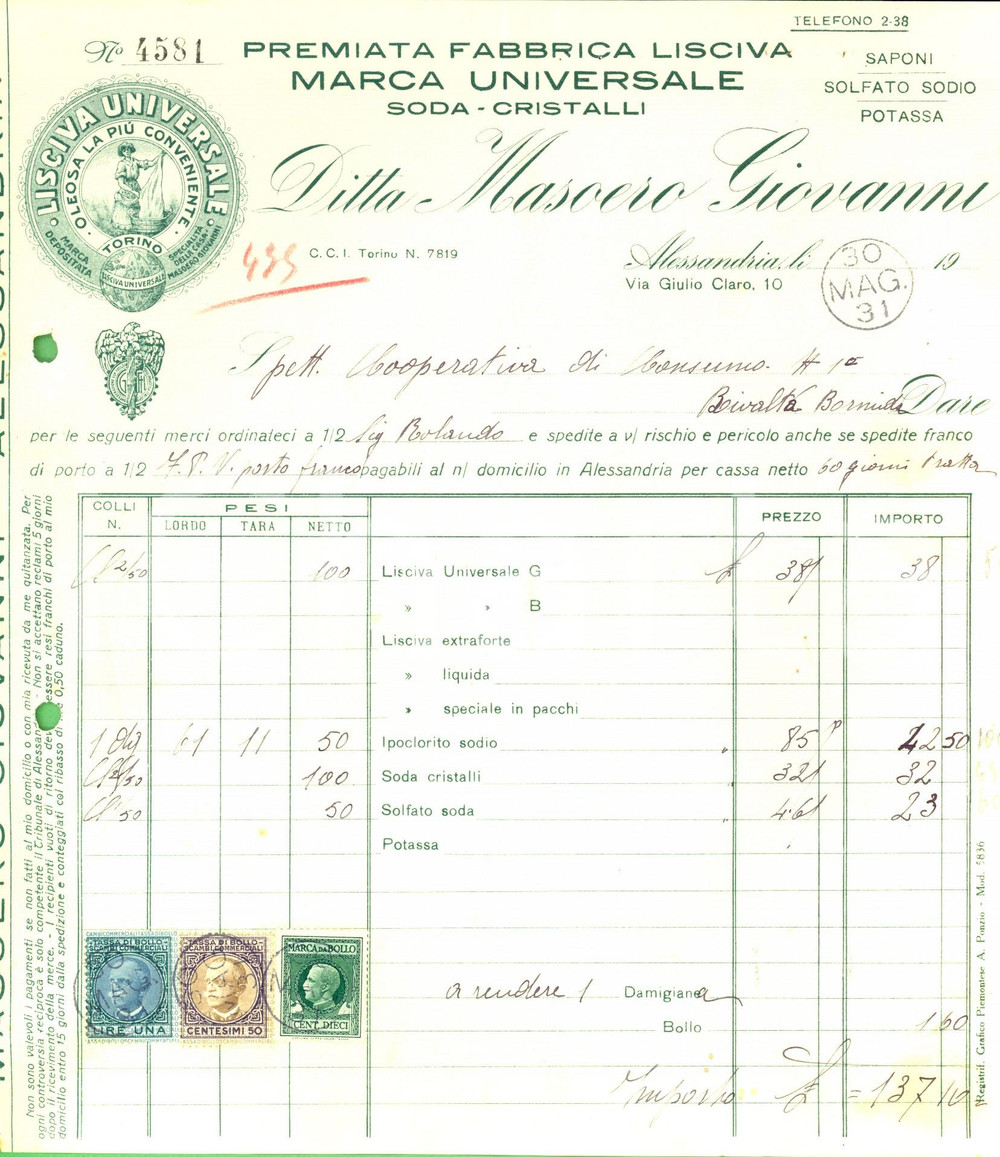 TELEFONO 2-38
Nº 4581
PREMIATA FABBRICA LISCIVA
MARCA UNIVERSALE
SODA - CRISTALLI
SAPONI
SOLFATO SODIO
POTASSA
LISCIVA UNIVERSALE
OLEOSA LA PIÚ CONVENIENTE
TORINO
MARCA DEPOSITATA
SPECIALITÀ DELLA CASA MASOERO GIOVANNI
LISCIVA UNIVERSALE
Ditta Masoero Giovanni
435
C. C. I. Torino N. 7819
Alessandria, li
19
Via Giulio Claro, 10
30
MAG.
31
Spett. Cooperativa di Consumo
Rivalta Bormida Dare
per le seguenti merci ordinateci a 1/2 Sig Rolando e spedite a v/ rischio e pericolo anche se spedite franco
di porto a 1/2 F. P. V. porto franco pagabili al n/ domicilio in Alessandria per cassa netto 60 giorni tratta
COLLI N. PESI PREZZO IMPORTO
LORDO TARA NETTO
2/50 100 Lisciva Universale G £ 38 38
» » B
Lisciva extraforte
» liquida
» speciale in pacchi
1 61 11 50 Ipoclorito sodio " 85 42 50
2/50 100 Soda cristalli 32 32
50 Solfato soda " 46 23
Potassa
a rendere 1 Damigiana
Bollo 1 60
Importo £ = 137 10
TASSA DI BOLLO
SCAMBI COMMERCIALI
LIRE UNA
TASSA DI BOLLO
SCAMBI COMMERCIALI
CENTESIMI 50
MARCA DA BOLLO
CENT. DIECI
Non sono valevoli i pagamenti se non fatti al mio domicilio o con mia ricevuta da me quitanzata. Per
ogni controversia reciproca è solo competente il Tribunale di Alessan - Non si accettano reclami 5 giorni
dopo il ricevimento della merce. - I recipienti vuoti di ritorno dev essere resi franchi di porto al mio
domicilio entro 15 giorni dalla spedizione e conteggiati col ribasso di 0,50 caduno.
Registrif. Grafico Piemontese A. Ponzio - Mod. 5836